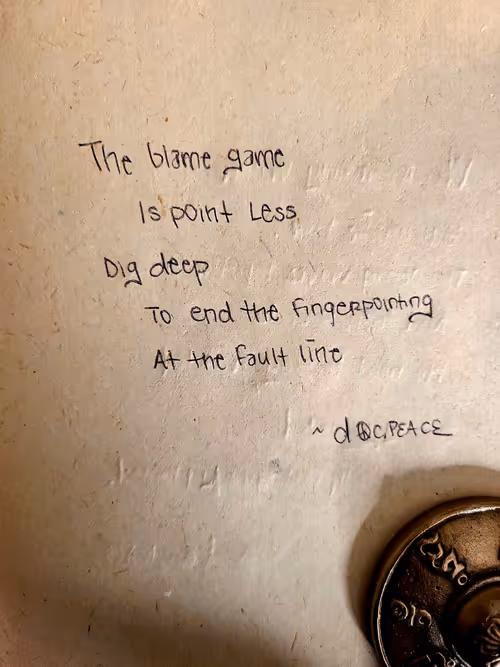 The blame game
Is point Less
Dig deep
To end the fingerpointing
At the fault line
~ d☮c.PEACE